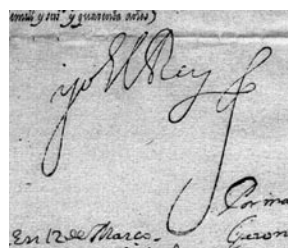 y quarenta años)
yo El Rey
Por ma
En 12 de Março.
Geron